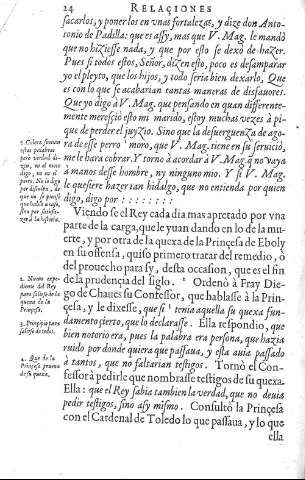 24 RELAÇIONES
sacarlos, y ponerlos en vnas fortalezas, y dize don Anto-
nio de Padilla: que es assy, mas que V. Mag. le mandò
que no hiziesse nada, y que por esto se dexò de hazer.
Pues si todos estos, Señor, dizen esto, poco es desamparar
yo el pleyto, que los hijos, y todo seria bien dexarlo, Que
es con lo que se acabarian tantas maneras de disfauores.
Que yo digo à V. Mag. que pensando en quan differente-
mente meresció esto mi marido, estoy muchas vezes à pi-
que de perder el juyzio. Sino que la desuerguenza de ago-
ra de esse perro moro, que V. Mag. tiene en su seruiciò,
me le hara cobrar. Y torno à acordar à V. Mag. q̃ no vaya
a manos desse hombre, ny ninguno mio. Y si V. Mag.
le quesiere hazer tan hidalgo, que no entienda por quien
digo, digo por : : : : : : : :
Viendose el Rey cada dia mas apretado por vna
parte de la carga, que le yuan dando en lo de la mu-
erte, y por otra de la quexa de la Prinçesa de Eboly
en su offensa, quiso primero tratar del remedio, ò
del prouecho para sy, desta occasion, que es el fin
de la prudençia del siglo. Ordenò à Fray Die-
go de Chaues su Confessor, que hablasse à la Prin-
çesa, y le dixesse, que si tenia aquella su quexa fun-
damento çierto, que lo declarasse. Ella respondio, que
bien notorio era, pues la palabra era persona, que hazia
ruido por donde quiera que passaua, y esta auia passado
à tantos, que no faltarian testigos. Tornò el Con-
fessor à pedirle que nombrasse testigos de su quexa.
Ella: que el Rey sabia tambien la verdad, que no deuia
pedir testigos, sino asy mismo. Consultò la Prinçesa
con el Cardenal de Toledo lo que passaua, y lo que
ella
2. Nueuo expe-
diente del Rey
para salirse de la
quexa de la
Prinçesa.
3. Prinçipio para
salirse de todo.
4. Que de la
Prinçesa prueua
de su quexa.